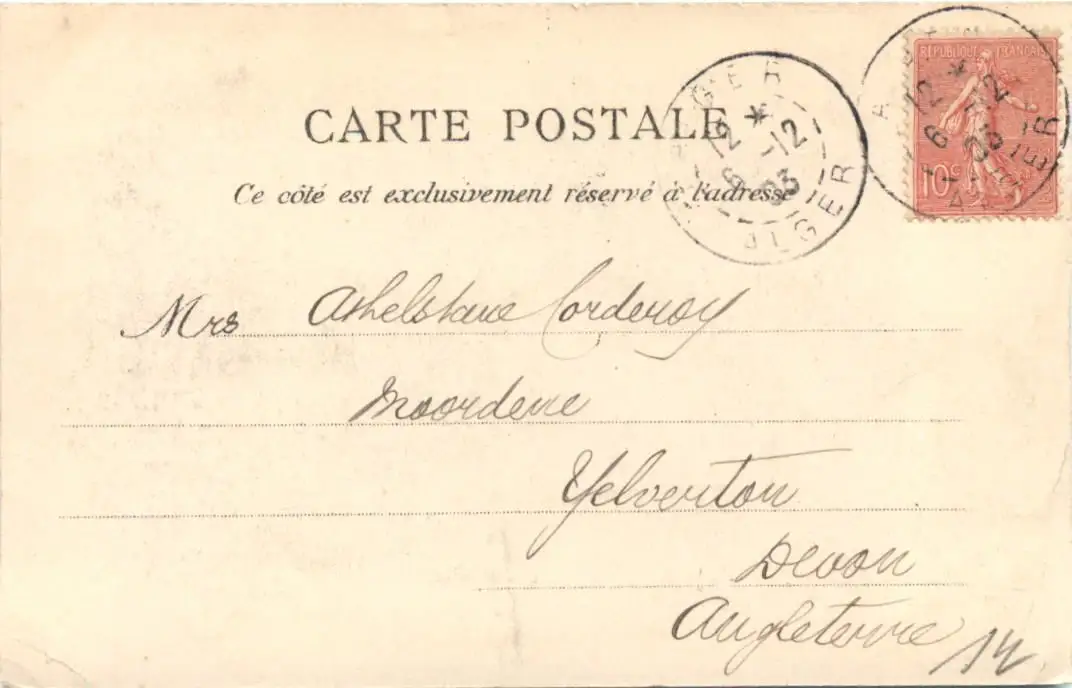 CARTE POSTALE
Ce côté est exclusivement réservé à l'adresse
ALGER * ALGER
6 12 -12 03
RÉPUBLIQUE FRANÇAISE
10c
Mrs Athelstane Corderoy
Moordene
Yelverton
Devon
Angleterre